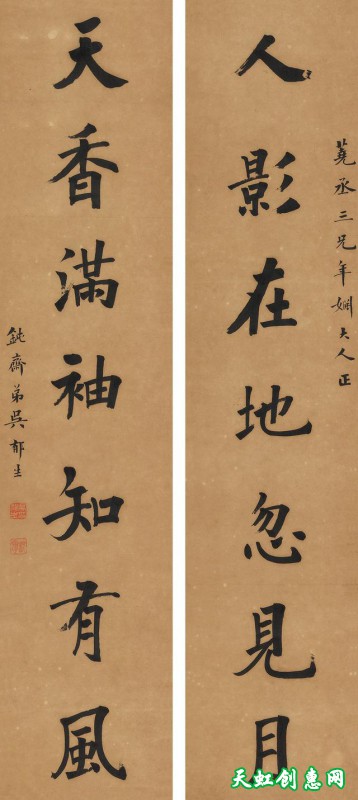 蕘丞三兄年婣大人正
人影在地忽見月
天香滿袖知有風
鈍齋弟吳郁生
天虹创惠网